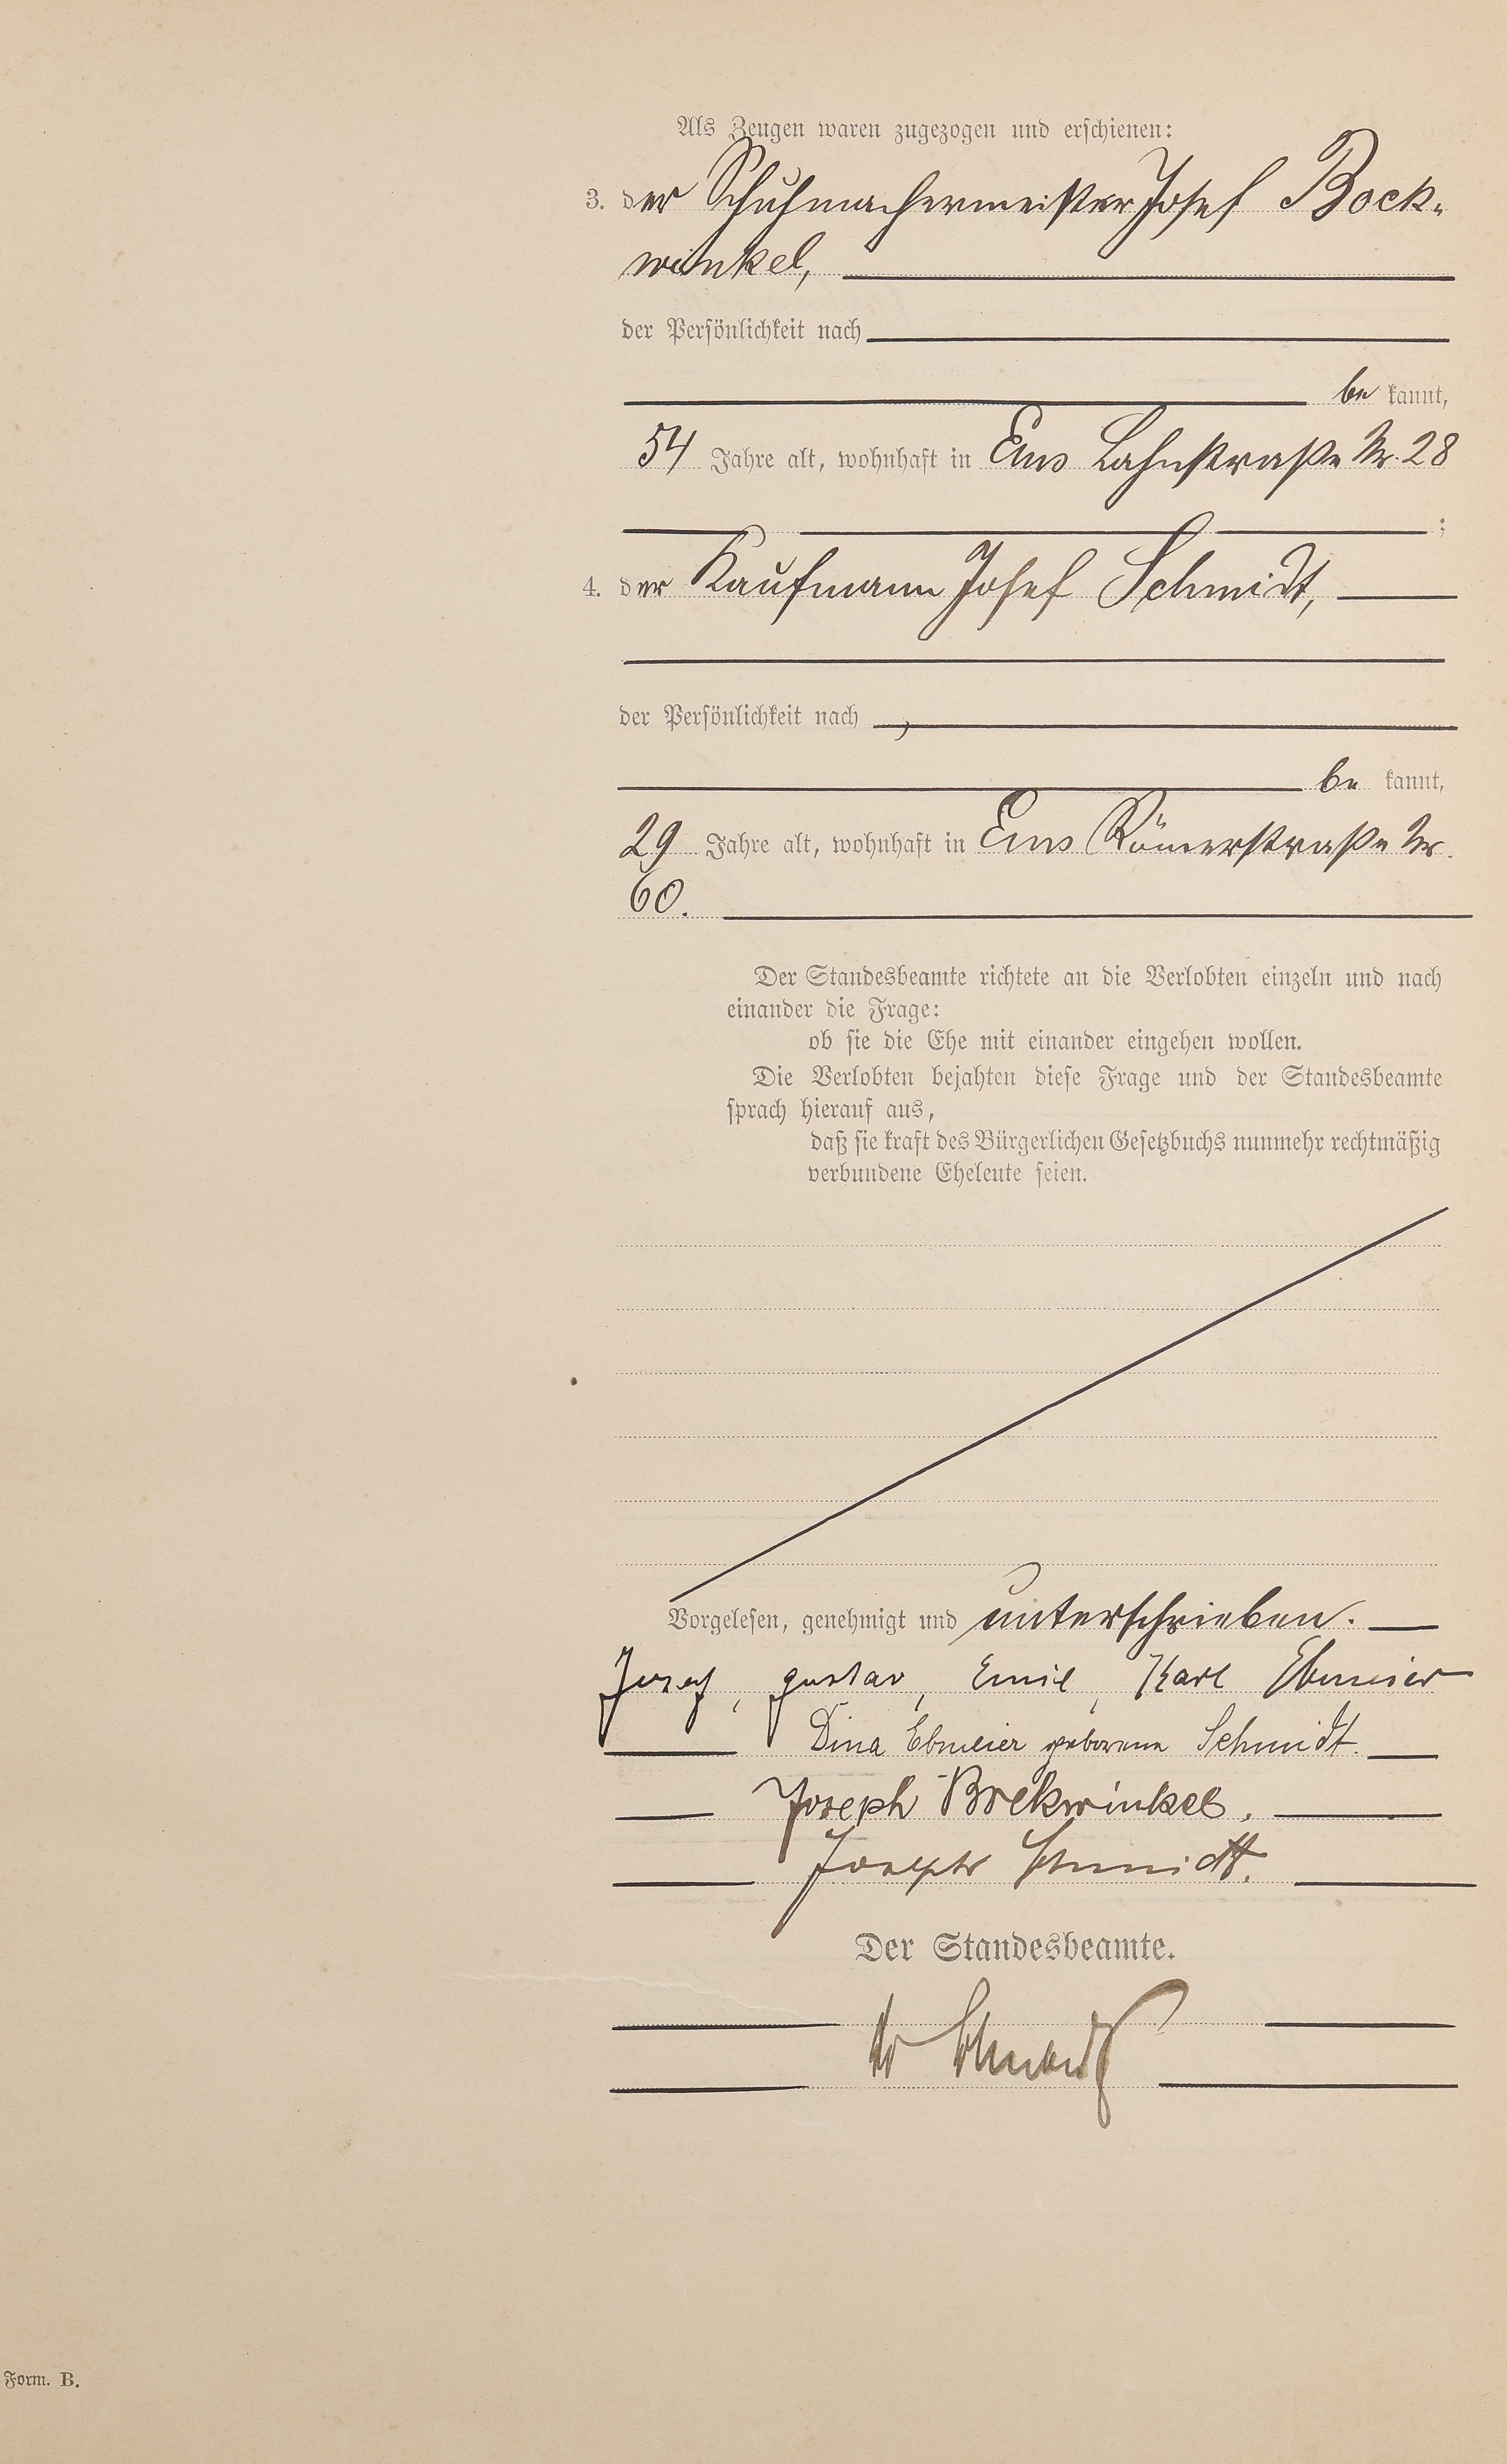 Als Zeugen waren zugezogen und erschienen:
3. der Schuhmachermeister Josef Bock-
winkel,
der Persönlichkeit nach
be kannt,
54 Jahre alt, wohnhaft in Ems Lahnstraße Nr. 28
;
4. der Kaufmann Josef Schmidt,
der Persönlichkeit nach
be kannt,
29 Jahre alt, wohnhaft in Ems Römerstraße Nr.
60.
Der Standesbeamte richtete an die Verlobten einzeln und nach
einander die Frage:
ob sie die Ehe mit einander eingehen wollen.
Die Verlobten bejahten diese Frage und der Standesbeamte
sprach hierauf aus,
daß sie kraft des Bürgerlichen Gesetzbuchs nunmehr rechtmäßig
verbundene Eheleute seien.
Vorgelesen, genehmigt und unterschrieben.
Josef, Gustav, Emil, Karl Ebmeier
Dina Ebmeier geborene Schmidt.
Joseph Bockwinkel.
Joseph Schmidt.
Der Standesbeamte.
Form. B.